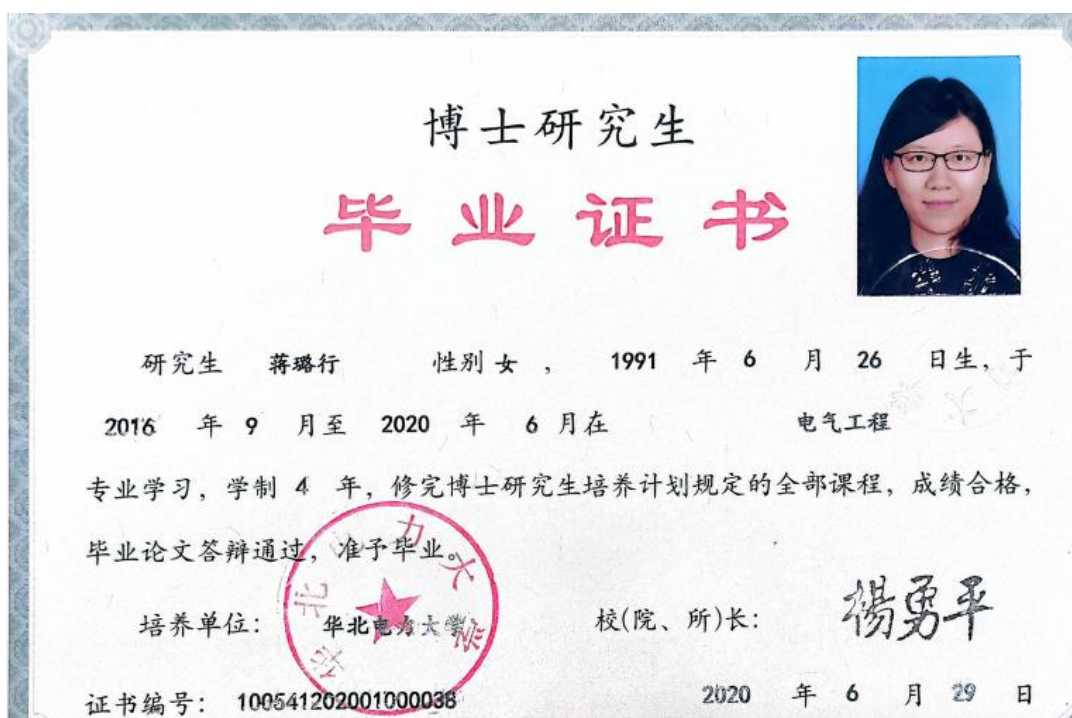 博士研究生
毕业证书
研究生 蒋璐行 性别 女 , 1991 年 6 月 26 日生, 于
2016 年 9 月至 2020 年 6 月在 电气工程
专业学习, 学制 4 年, 修完博士研究生培养计划规定的全部课程, 成绩合格,
毕业论文答辩通过, 准予毕业。
培养单位: 华北电力大学 校(院、所)长: 楊勇平
证书编号: 100541202001000038 2020 年 6 月 29 日
华北电力大学